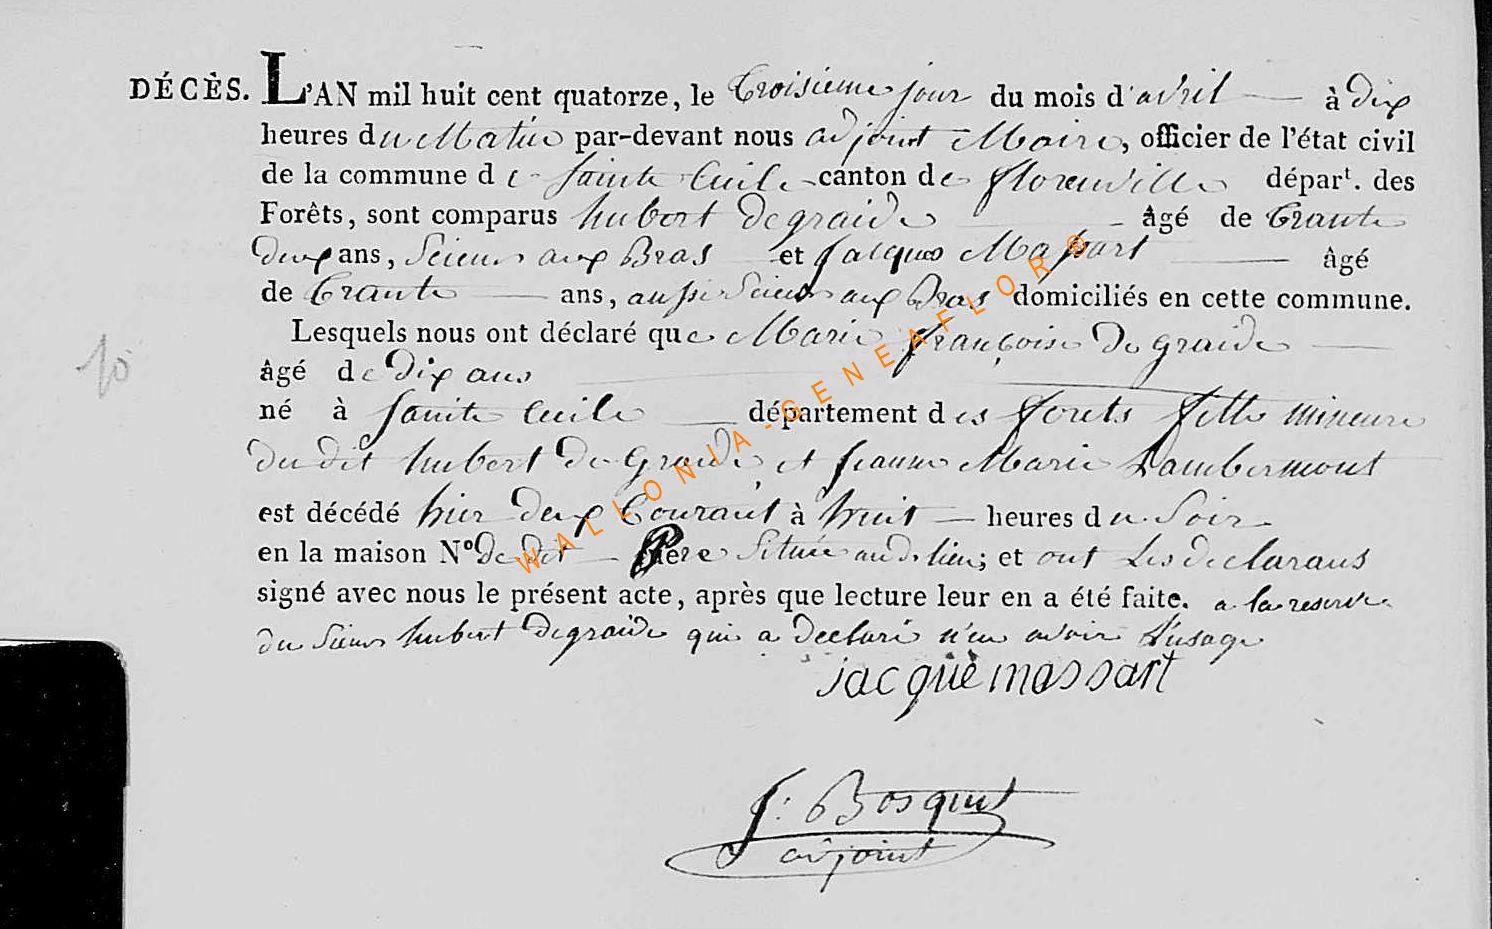 DÉCÈS. L'AN mil huit cent quatorze, le troisieme jour du mois d'avril à dix
heures du Matin par-devant nous adjoint Maire, officier de l'état civil
de la commune de Sainte Cecile canton de florenville départ. des
Forêts, sont comparus hubert Degraide âgé de trante
deux ans, Scieur aux Bras et Jacques Massart âgé
de trante ans, aussi Scieur aux Bras domiciliés en cette commune.
Lesquels nous ont déclaré que Marie françoise De graide
âgé de Dix ans
né à Sainte Cecile département des forets fille mineure
du dit hubert De Graide, et jeanne Marie Lambermont
est décédé hier deux Courant à huit heures du Soir
en la maison N° de dit Père Située aud. lieu; et ont les declarans
signé avec nous le présent acte, après que lecture leur en a été faite. a la reserve
du Sieur hubert Degraide qui a declaré n'en avoir l'usage
jacque massart
J: Bosquet
adjoint
10
WALLONIA-GENEAFLOR®